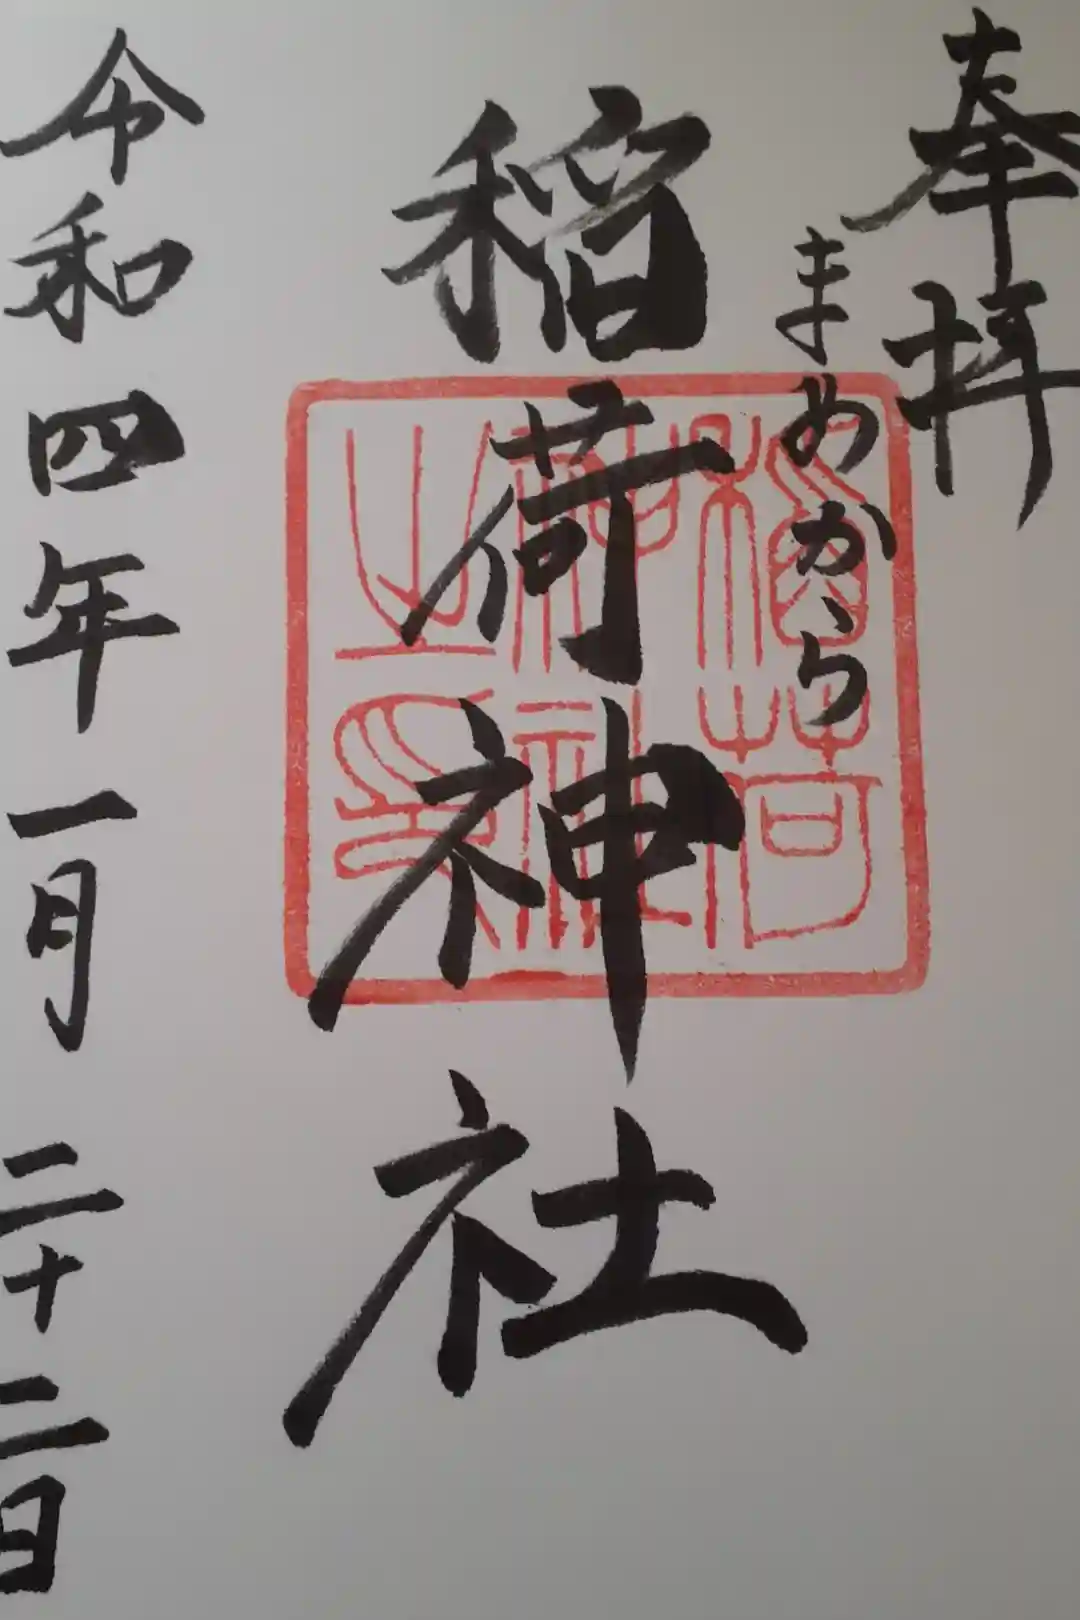 奉拝
まめから
稲荷神社
稲荷
神社
之印
令和四年一月二十二日